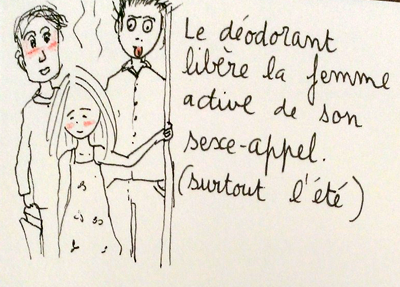 Le déodorant
libère la femme
active de son
sexe-appel.
(surtout l'été)